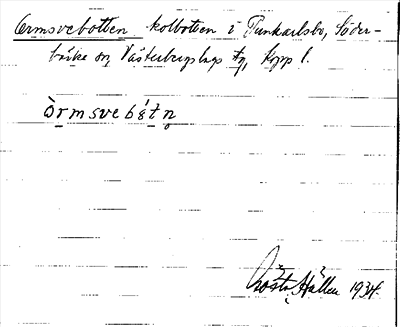 Ormsvebotten kolbotten i Tunkarlsbo, Söder-
bärke sn, Västerbergslags tg, Kopp. l.
òrmsvebót̬n̥
Gösta Hallen 1934